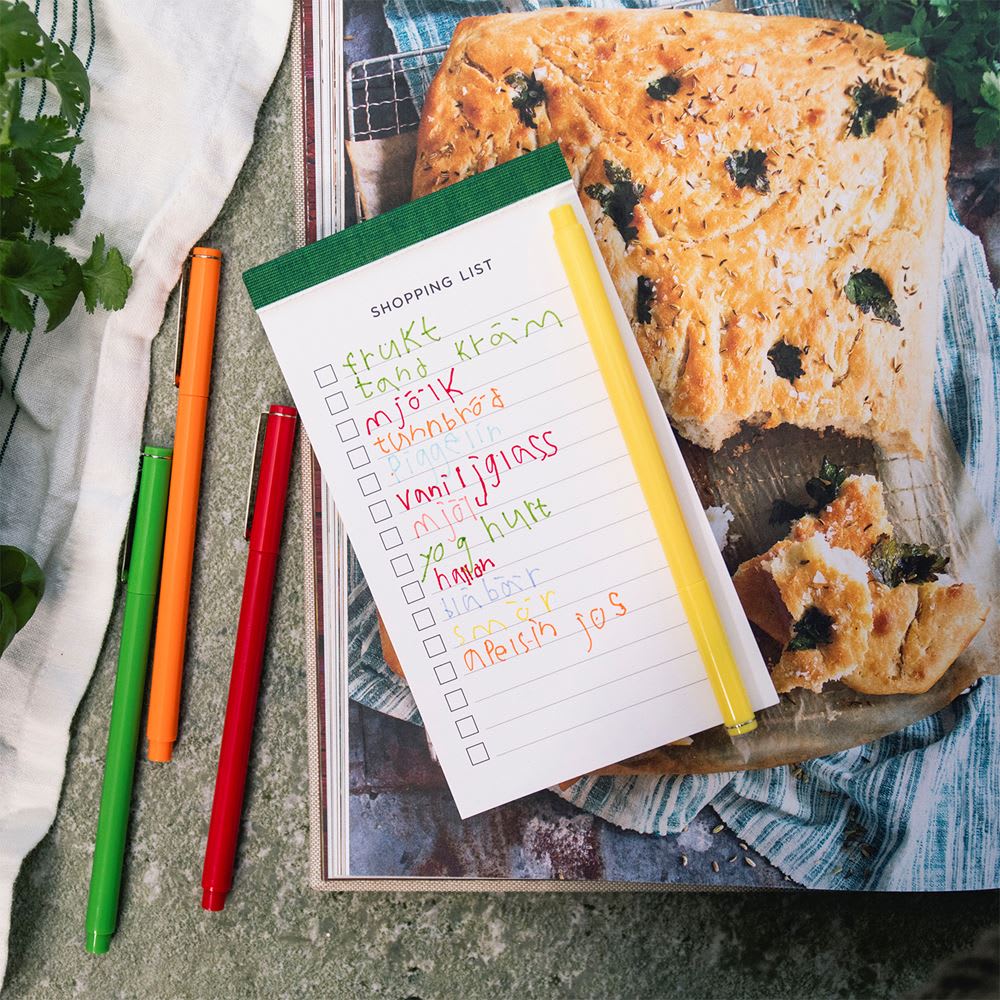 SHOPPING LIST
frukt
tand kräm
mjölk
tunnbröd
piggelin
vaniljglass
mjöl
yoghurt
hallon
blåbär
smör
apelsin jos